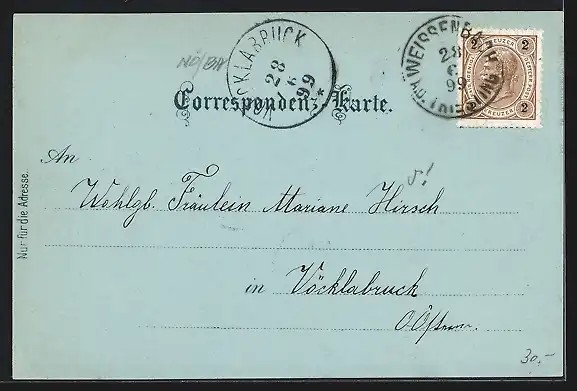 NÖ/BA
VÖCKLABRUCK
28
6
99
*
WEISSENBA
28
6
99
2 2
KREUZER
2 2
Correspondenz-Karte.
An
♂!
Wohlgb. Fräulein Mariane Hirsch
in Vöcklabruck
OÖstrr.
Nur für die Adresse.
30,-